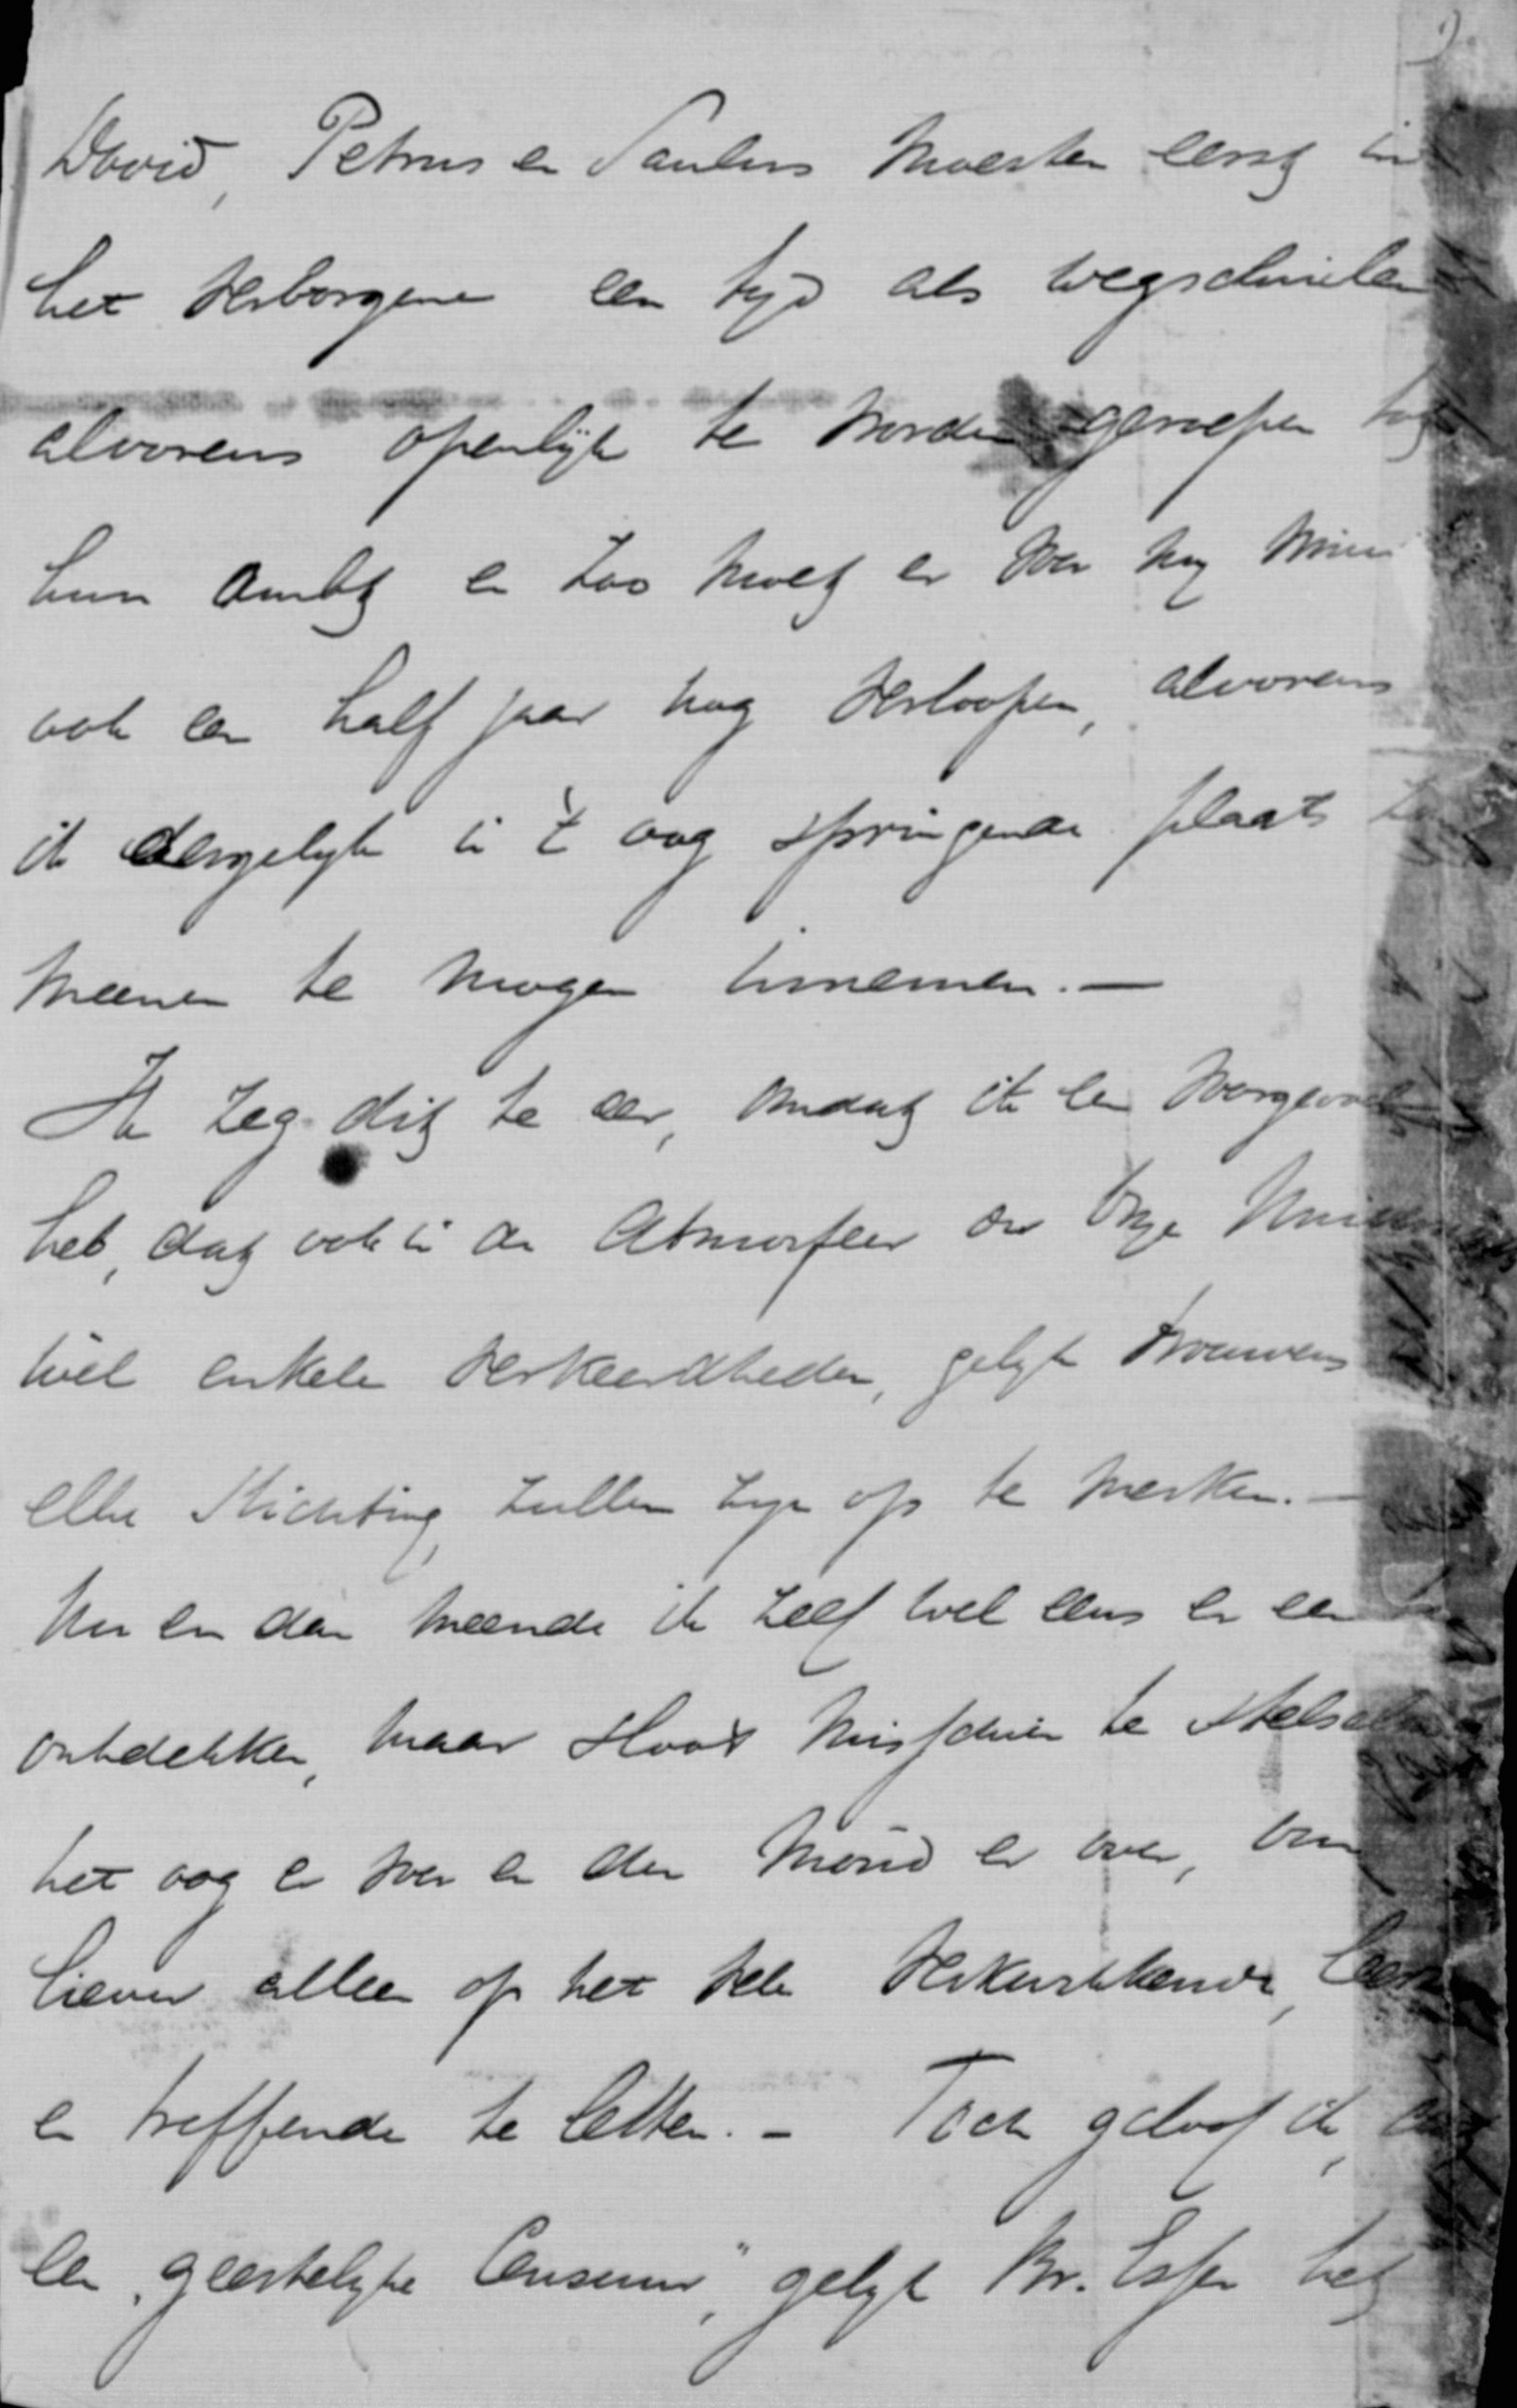 David, Petrus en Paulus moesten eerst in
het verborgene een tyd als wegschuilen
alvorens openlyk te worden geroepen tot
hun ambt en zoo moet er voor my
ook een half jaar nog verloopen, alvorens
ik dergelyk in 't oog springende plaats
meenen te mogen innemen. —
Ik zeg dit te eer, omdat ik een voorgevoel
heb, dat ook in de Atmosfeer der Onze
wel enkele verkeerdheden, gelyk trouwens
elke Stichting, zullen zyn op te merken. —
Nu en dan meende ik zelf wel eens er een
ontdekken, maar sloot misschien te
het oog er voor en den mond er over, om
liever alleen op het vele verkwikkende,
en treffende te letten. — Toch geloof ik,
een "geestelyke Censuur", gelyk Br. het